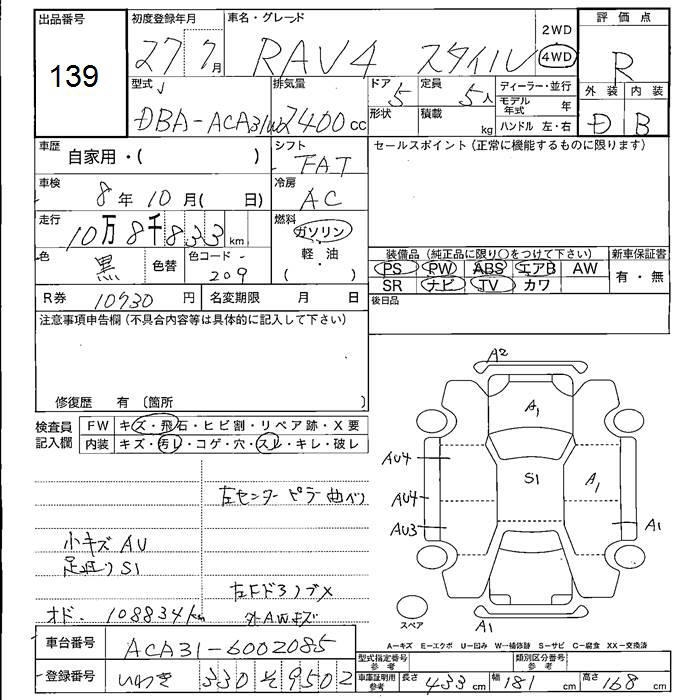 出品番号 139
初度登録年月 27 7月
車名・グレード RAV4 スタイル
2WD 4WD
評価点 R
外装 D 内装 B
型式 DBA-ACA31W
排気量 2400cc
ドア 5 形状
定員 5人 積載 kg
ディーラー・並行
モデル年式 年
ハンドル 左・右
車歴 自家用・( )
シフト FAT
セールスポイント(正常に機能するものに限ります)
車検 8年10月( 日)
冷房 AC
走行 10万8千833km
燃料 ガソリン 軽・油 ( )
色 黒 色替 色コード 209
装備品(純正品に限り○をつけて下さい) 新車保証書
PS PW ABS エアB AW 有・無
SR ナビ TV カワ
R券 10930円 名変期限 月 日
後日品
注意事項申告欄(不具合内容等は具体的に記入して下さい)
修復歴 有 〔箇所 〕
検査員記入欄 FW キズ・飛石・ヒビ割・リペア跡・X要
内装 キズ・汚レ・コゲ・穴・スレ・キレ・破レ
左センターピラー曲ベリ
小キズ AU
足廻り S1
左Fドアノブ X
オド. 108834km
外AWキズ
A2
A1
AU4
S1
A1
AU4
AU3
A1
スペア
A1
A-キズ E-エクボ U-凹み W-補修跡 S-サビ C-腐食 XX-交換済
車台番号 ACA31-6002085
型式指定番号 参考 類別区分番号 参考
登録番号 いわき 330 そ 9502
車庫証明用参考 長さ 433cm 幅 181cm 高さ 168cm